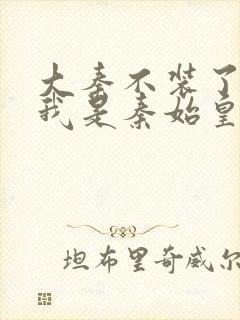 大秦不装了
我是秦始皇
坦布里奇威尔